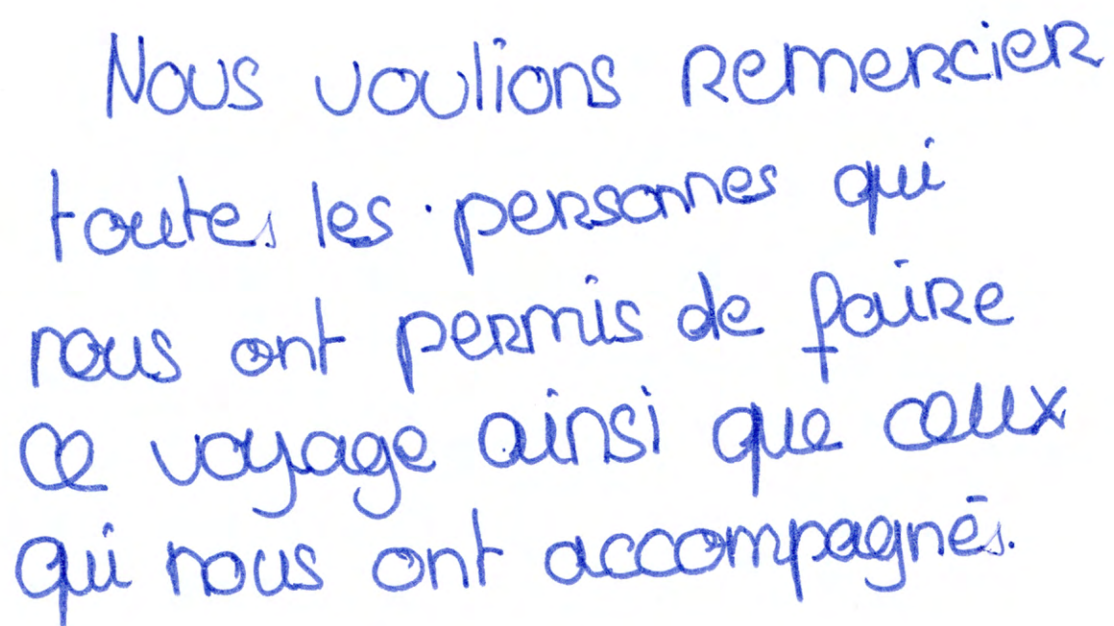 Nous voulions remercier
toutes les personnes qui
nous ont permis de faire
ce voyage ainsi que ceux
qui nous ont accompagnés.